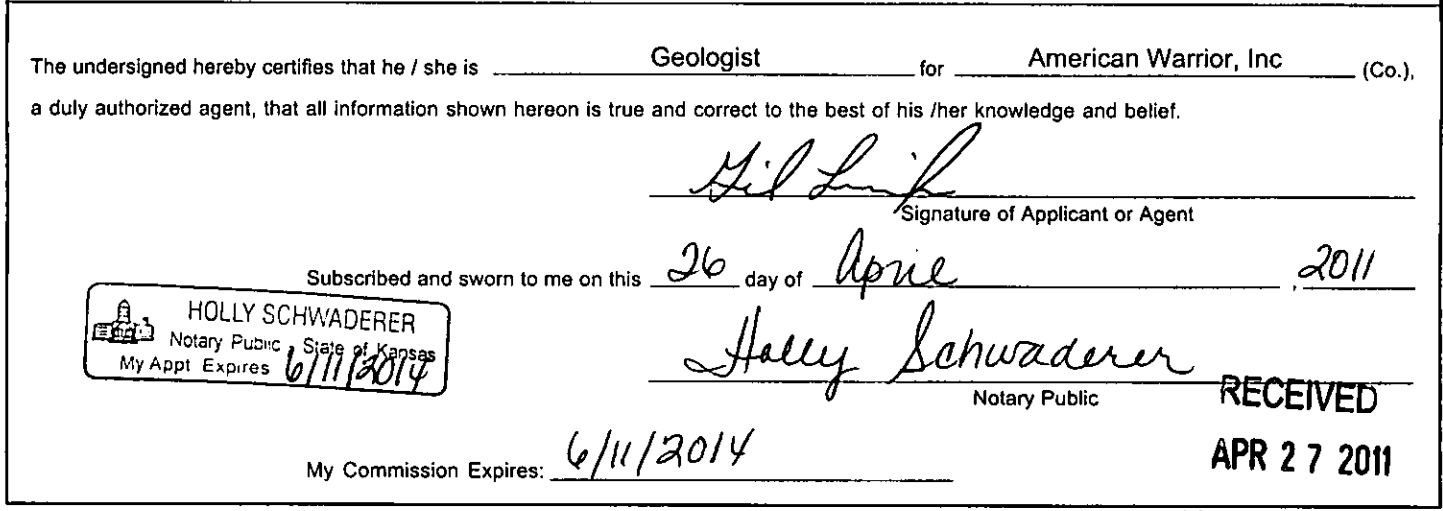 The undersigned hereby certifies that he / she is Geologist for American Warrior, Inc (Co.),
a duly authorized agent, that all information shown hereon is true and correct to the best of his /her knowledge and belief.
Signature of Applicant or Agent
Subscribed and sworn to me on this 26 day of April , 2011
HOLLY SCHWADERER
Notary Public State of Kansas
My Appt Expires 6/11/2014
Holly Schwaderer
Notary Public
RECEIVED
My Commission Expires: 6/11/2014
APR 27 2011